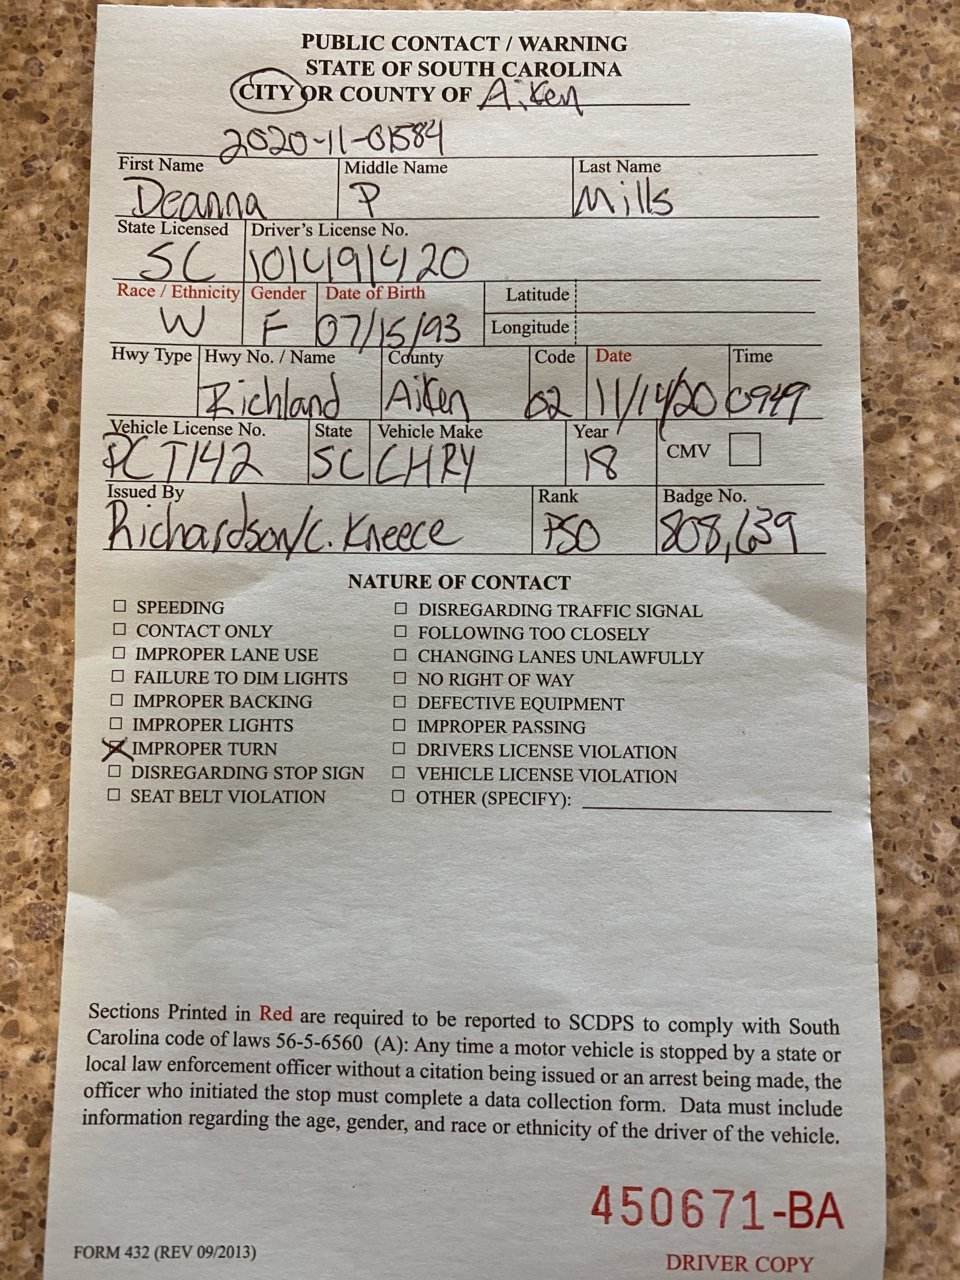 PUBLIC CONTACT / WARNING
STATE OF SOUTH CAROLINA
CITY OR COUNTY OF Aiken
2020-11-01584
First Name Middle Name Last Name
Deanna P Mills
State Licensed Driver's License No.
SC 101491420
Race / Ethnicity Gender Date of Birth Latitude
W F 07/15/93 Longitude
Hwy Type Hwy No. / Name County Code Date Time
Richland Aiken 02 11/14/20 0949
Vehicle License No. State Vehicle Make Year CMV
PCT142 SC CHRY 18
Issued By Rank Badge No.
Richardson/C. Kneece PSO 808,639
NATURE OF CONTACT
☐ SPEEDING ☐ DISREGARDING TRAFFIC SIGNAL
☐ CONTACT ONLY ☐ FOLLOWING TOO CLOSELY
☐ IMPROPER LANE USE ☐ CHANGING LANES UNLAWFULLY
☐ FAILURE TO DIM LIGHTS ☐ NO RIGHT OF WAY
☐ IMPROPER BACKING ☐ DEFECTIVE EQUIPMENT
☐ IMPROPER LIGHTS ☐ IMPROPER PASSING
☒ IMPROPER TURN ☐ DRIVERS LICENSE VIOLATION
☐ DISREGARDING STOP SIGN ☐ VEHICLE LICENSE VIOLATION
☐ SEAT BELT VIOLATION ☐ OTHER (SPECIFY):
Sections Printed in Red are required to be reported to SCDPS to comply with South
Carolina code of laws 56-5-6560 (A): Any time a motor vehicle is stopped by a state or
local law enforcement officer without a citation being issued or an arrest being made, the
officer who initiated the stop must complete a data collection form. Data must include
information regarding the age, gender, and race or ethnicity of the driver of the vehicle.
450671-BA
FORM 432 (REV 09/2013) DRIVER COPY